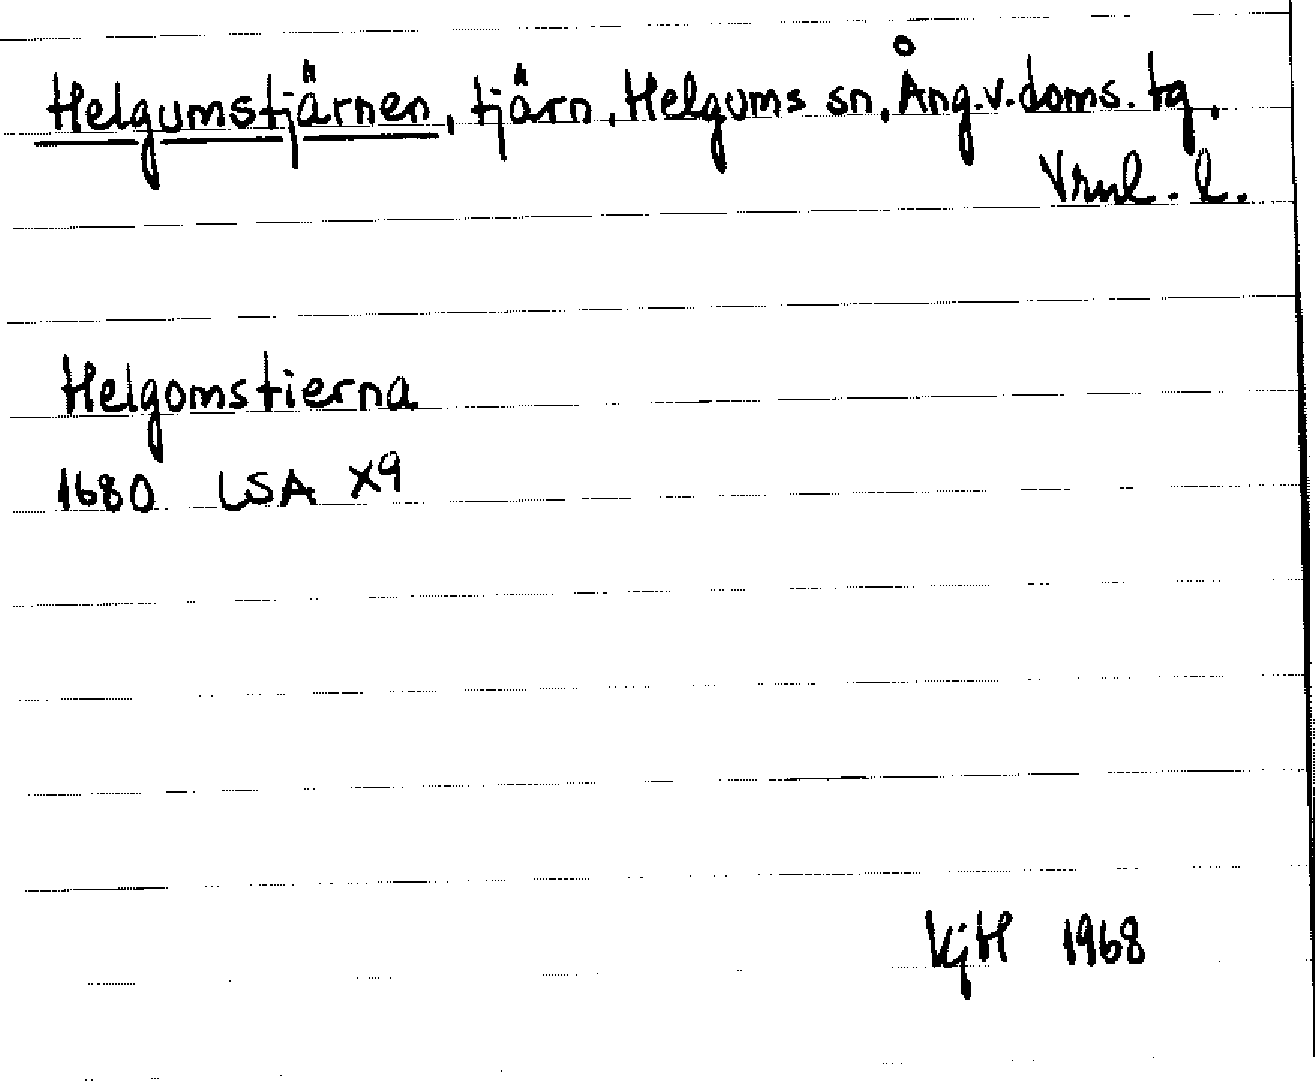 Helgumstjärnen, tjärn, Helgums sn, Ång.v.doms.tg.
Vrnl. l.
Helgomstierna
1680 LSA X9
KjH 1968